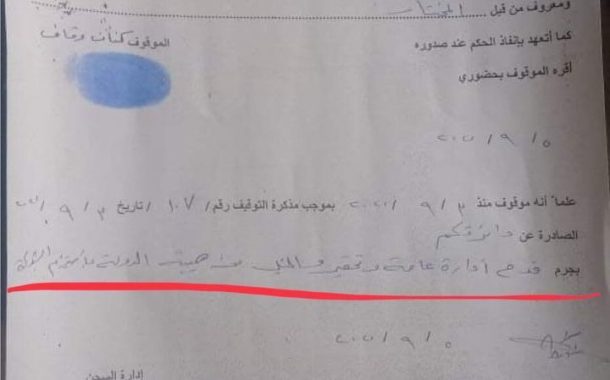 ومعروف من قبل المختار
كما أتعهد بإنفاذ الحكم عند صدوره الموقوف كنان وقاف
أقره الموقوف بحضوري
٢٠٢٠/ ٩ / ٥
علماً أنه موقوف منذ ٣ / ٩ / ٢٠٢٠ بموجب مذكرة التوقيف رقم / ١٠٧ / تاريخ ٣ / ٩ /
الصادرة عن دائرتكم
بجرم قدح إدارة عامة وتحقير والنيل من هيبة الدولة باستخدام الشبكة
٢٠٢٠/ ٩ / ٥
إدارة السجن